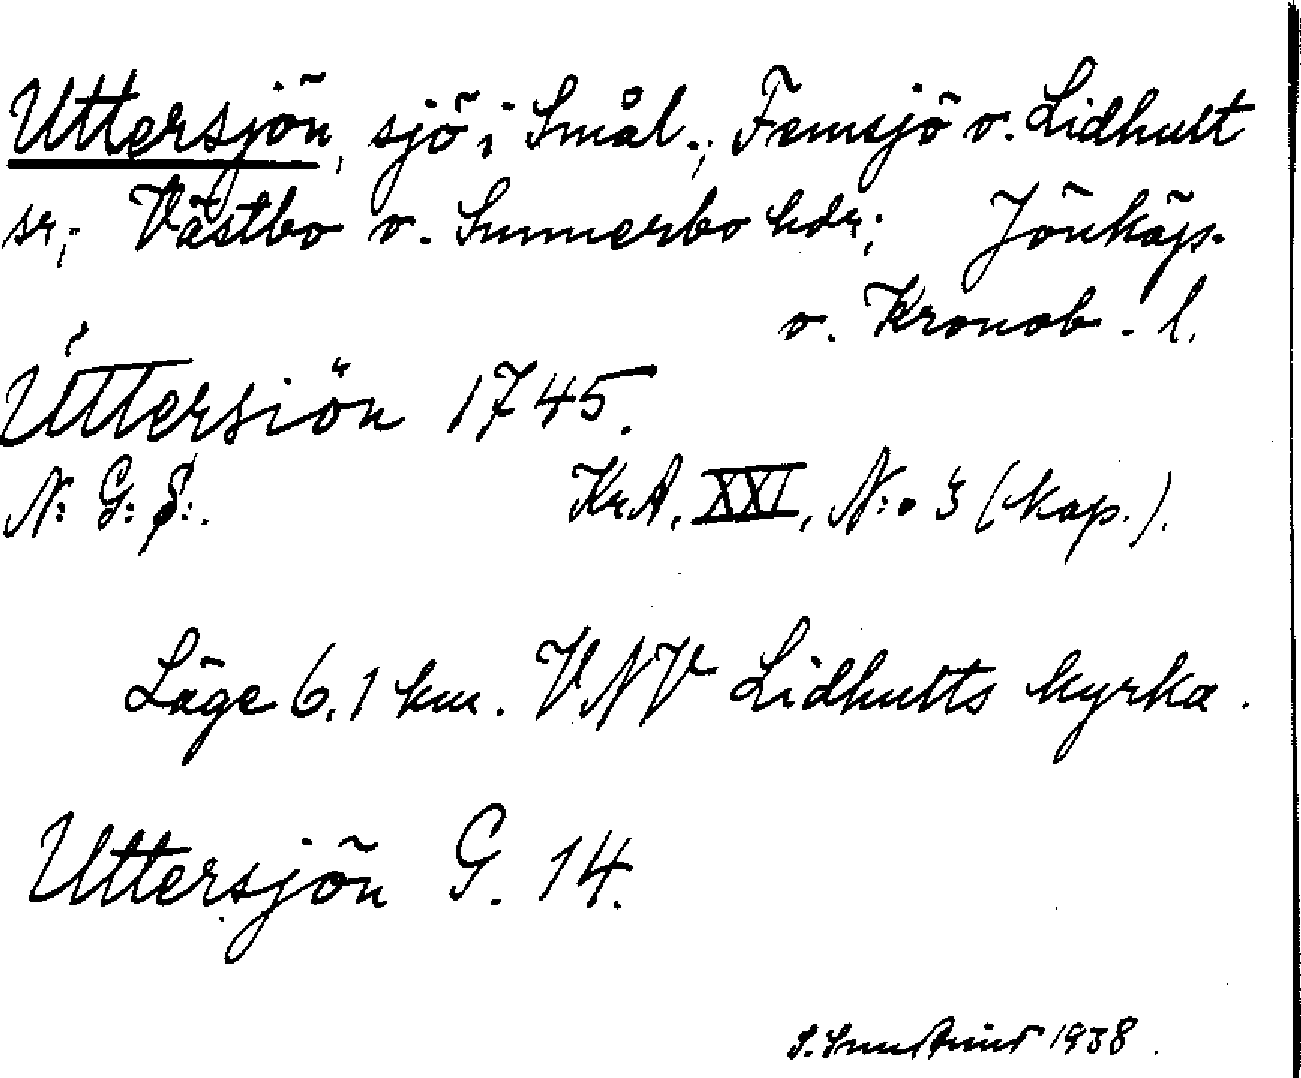 Uttersjön, sjö i Smål.; Femsjö o. Lidhult
sr; Västbo o. Sunnerbo hdr; Jönköp.
o. Kronob. l.
Uttersiön 1745.
N: G: S:. Kr.A. XXI, N:o 3 (kop.).
Läge 6,1 km. VNV Lidhults kyrka.
Uttersjön G. 14.
1938.